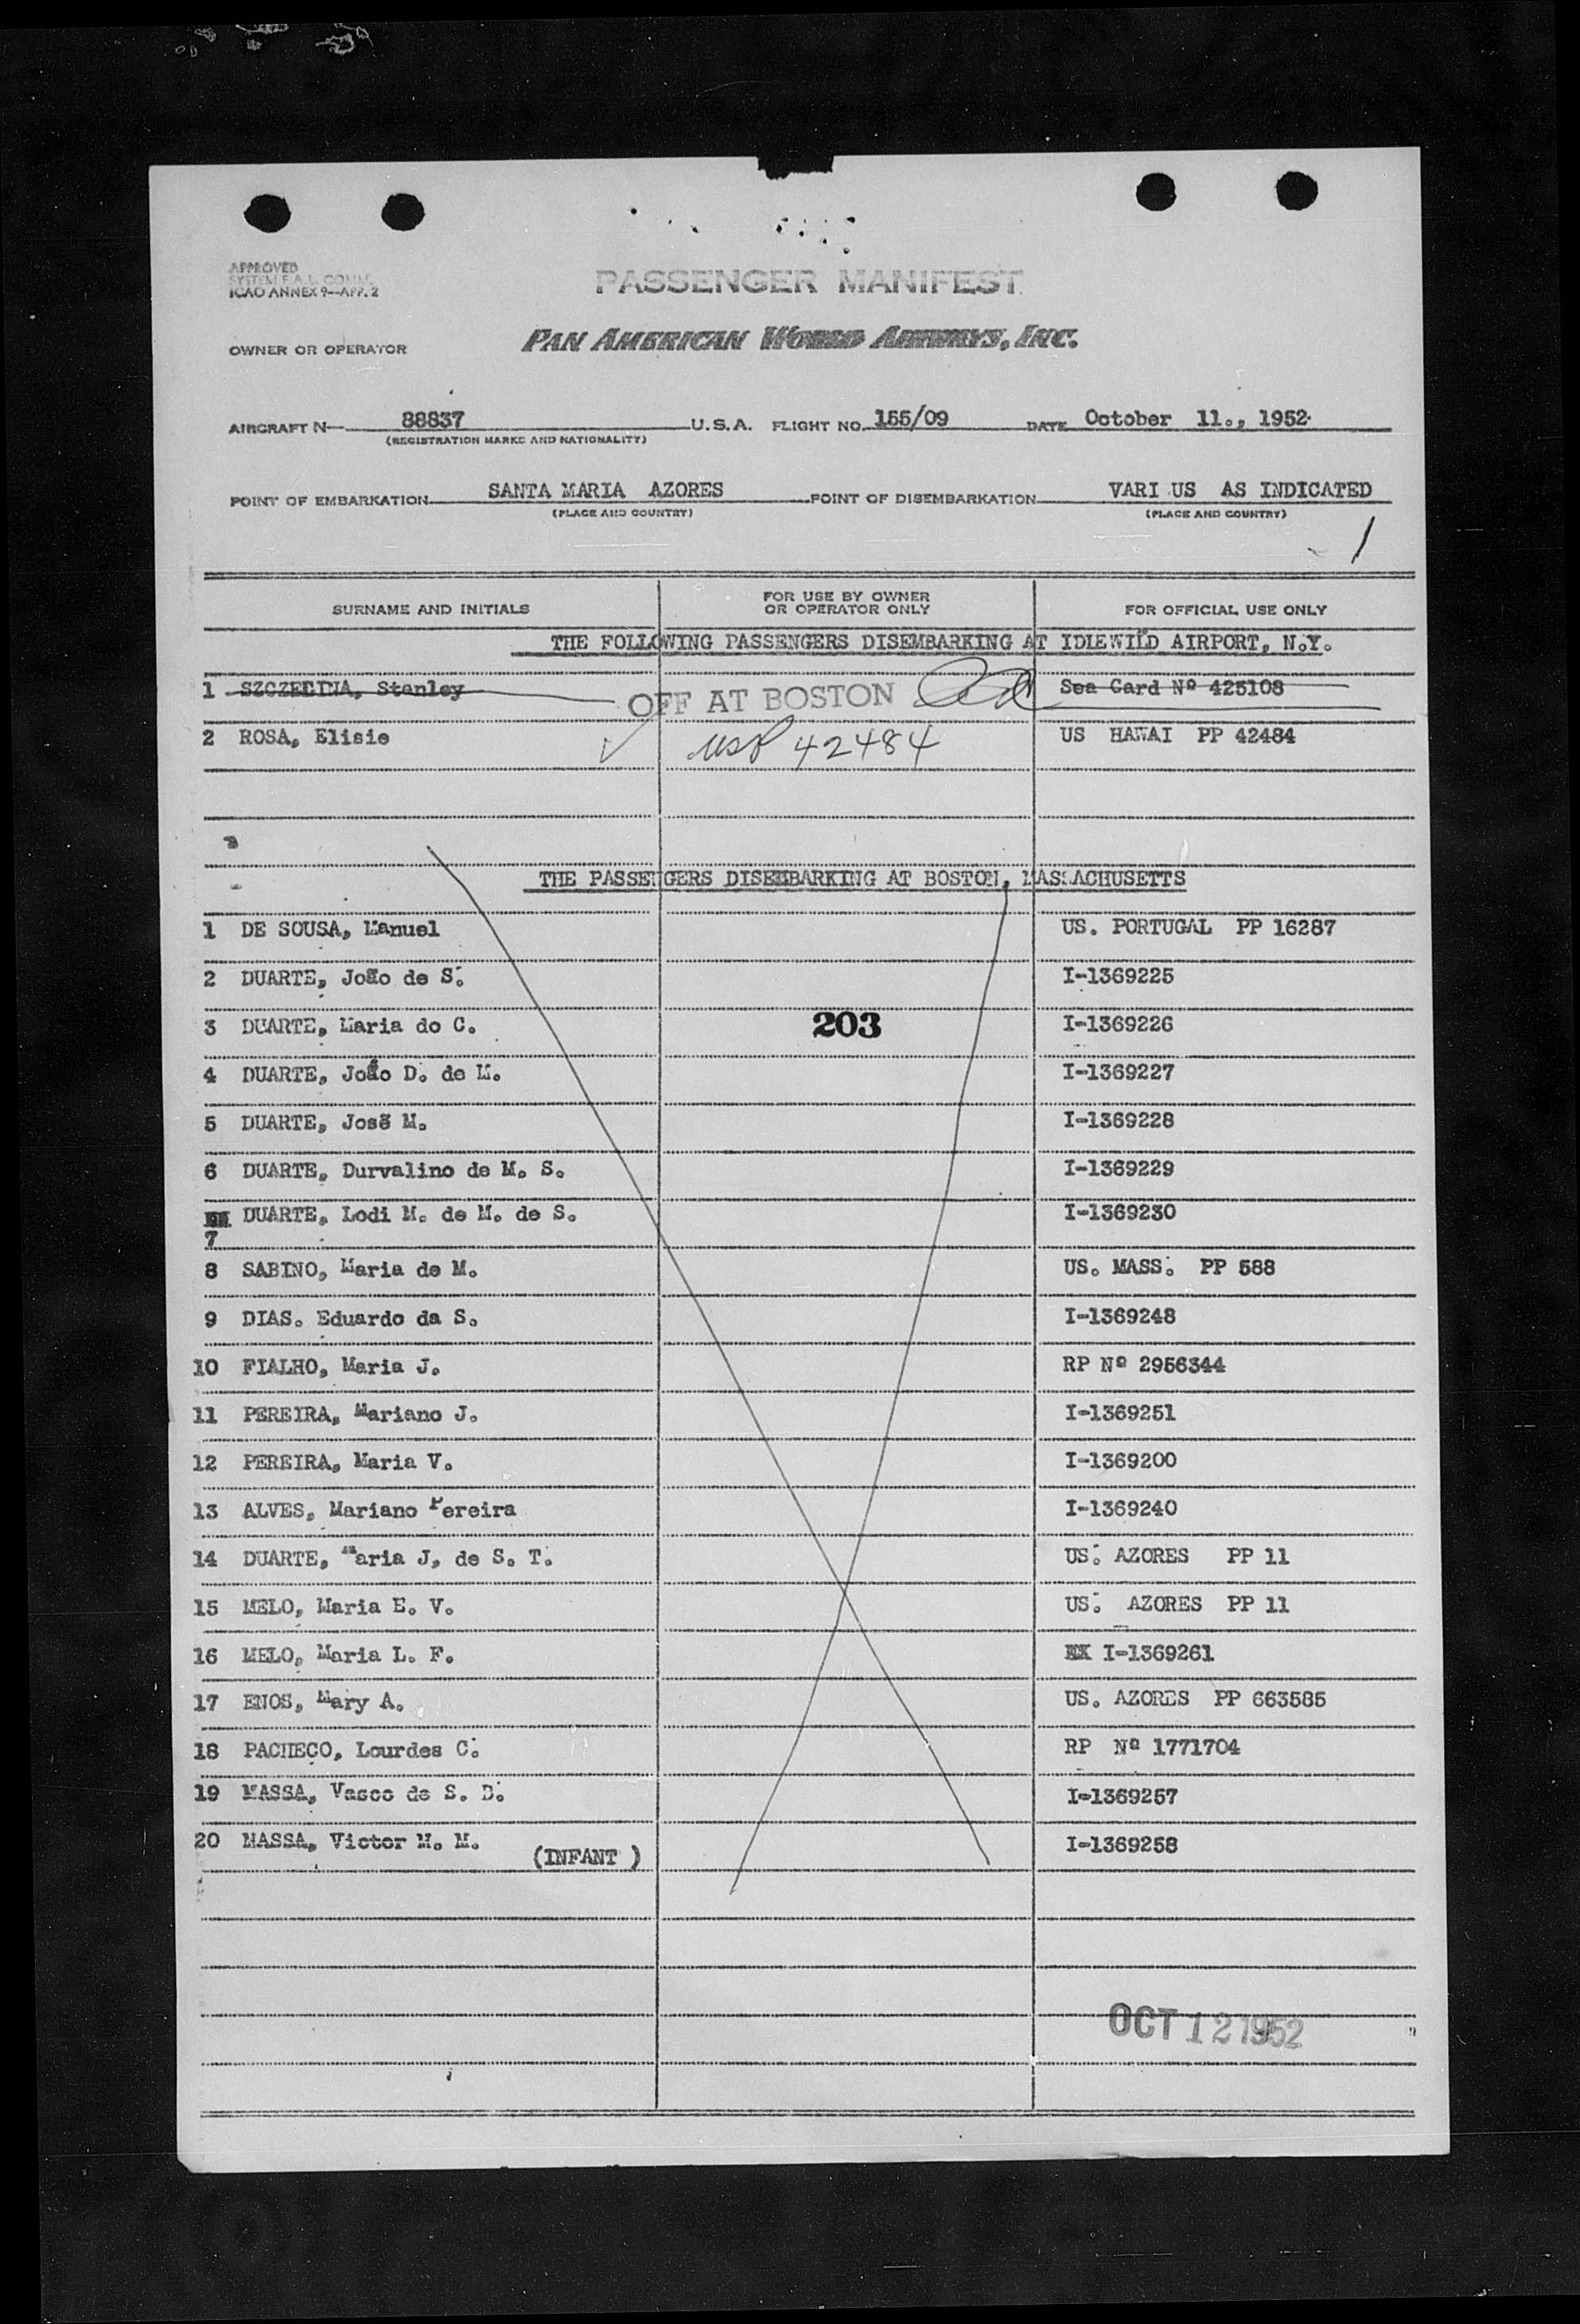 APPROVED
SYSTEM F.A.L. COMM.
ICAO ANNEX 9—APP. 2
PASSENGER MANIFEST
OWNER OR OPERATOR PAN AMERICAN WORLD AIRWAYS, INC.
AIRCRAFT N— 88837 U.S.A. FLIGHT NO. 155/09 DATE October 11., 1952
(REGISTRATION MARKS AND NATIONALITY)
POINT OF EMBARKATION SANTA MARIA AZORES POINT OF DISEMBARKATION VARI US AS INDICATED
(PLACE AND COUNTRY) (PLACE AND COUNTRY)
1
SURNAME AND INITIALS FOR USE BY OWNER OR OPERATOR ONLY FOR OFFICIAL USE ONLY
THE FOLLOWING PASSENGERS DISEMBARKING AT IDLEWILD AIRPORT, N.Y.
1 Stanley OFF AT BOSTON Sea Card Nº 425108
2 ROSA, Elisie USP 42484 US HAWAI PP 42484
THE PASSENGERS DISEMBARKING AT BOSTON, MASSACHUSETTS
1 DE SOUSA, Manuel US. PORTUGAL PP 16287
2 DUARTE, João de S. I-1369225
3 DUARTE, Maria do C. 203 I-1369226
4 DUARTE, João D. de M. I-1369227
5 DUARTE, José M. I-1369228
6 DUARTE, Durvalino de M. S. I-1369229
7 DUARTE, Lodi M. de M. de S. I-1369230
8 SABINO, Maria de M. US. MASS. PP 588
9 DIAS. Eduardo da S. I-1369248
10 FIALHO, Maria J. RP Nº 2956344
11 PEREIRA, Mariano J. I-1369251
12 PEREIRA, Maria V. I-1369200
13 ALVES, Mariano Pereira I-1369240
14 DUARTE, Maria J, de S. T. US. AZORES PP 11
15 MELO, Maria E. V. US. AZORES PP 11
16 MELO, Maria L. F. I-1369261
17 ENOS, Mary A. US. AZORES PP 663585
18 PACHECO, Lourdes C. RP Nº 1771704
19 MASSA, Vasco de S. B. I-1369257
20 MASSA, Victor M. M. (INFANT) I-1369258
OCT 12 1952